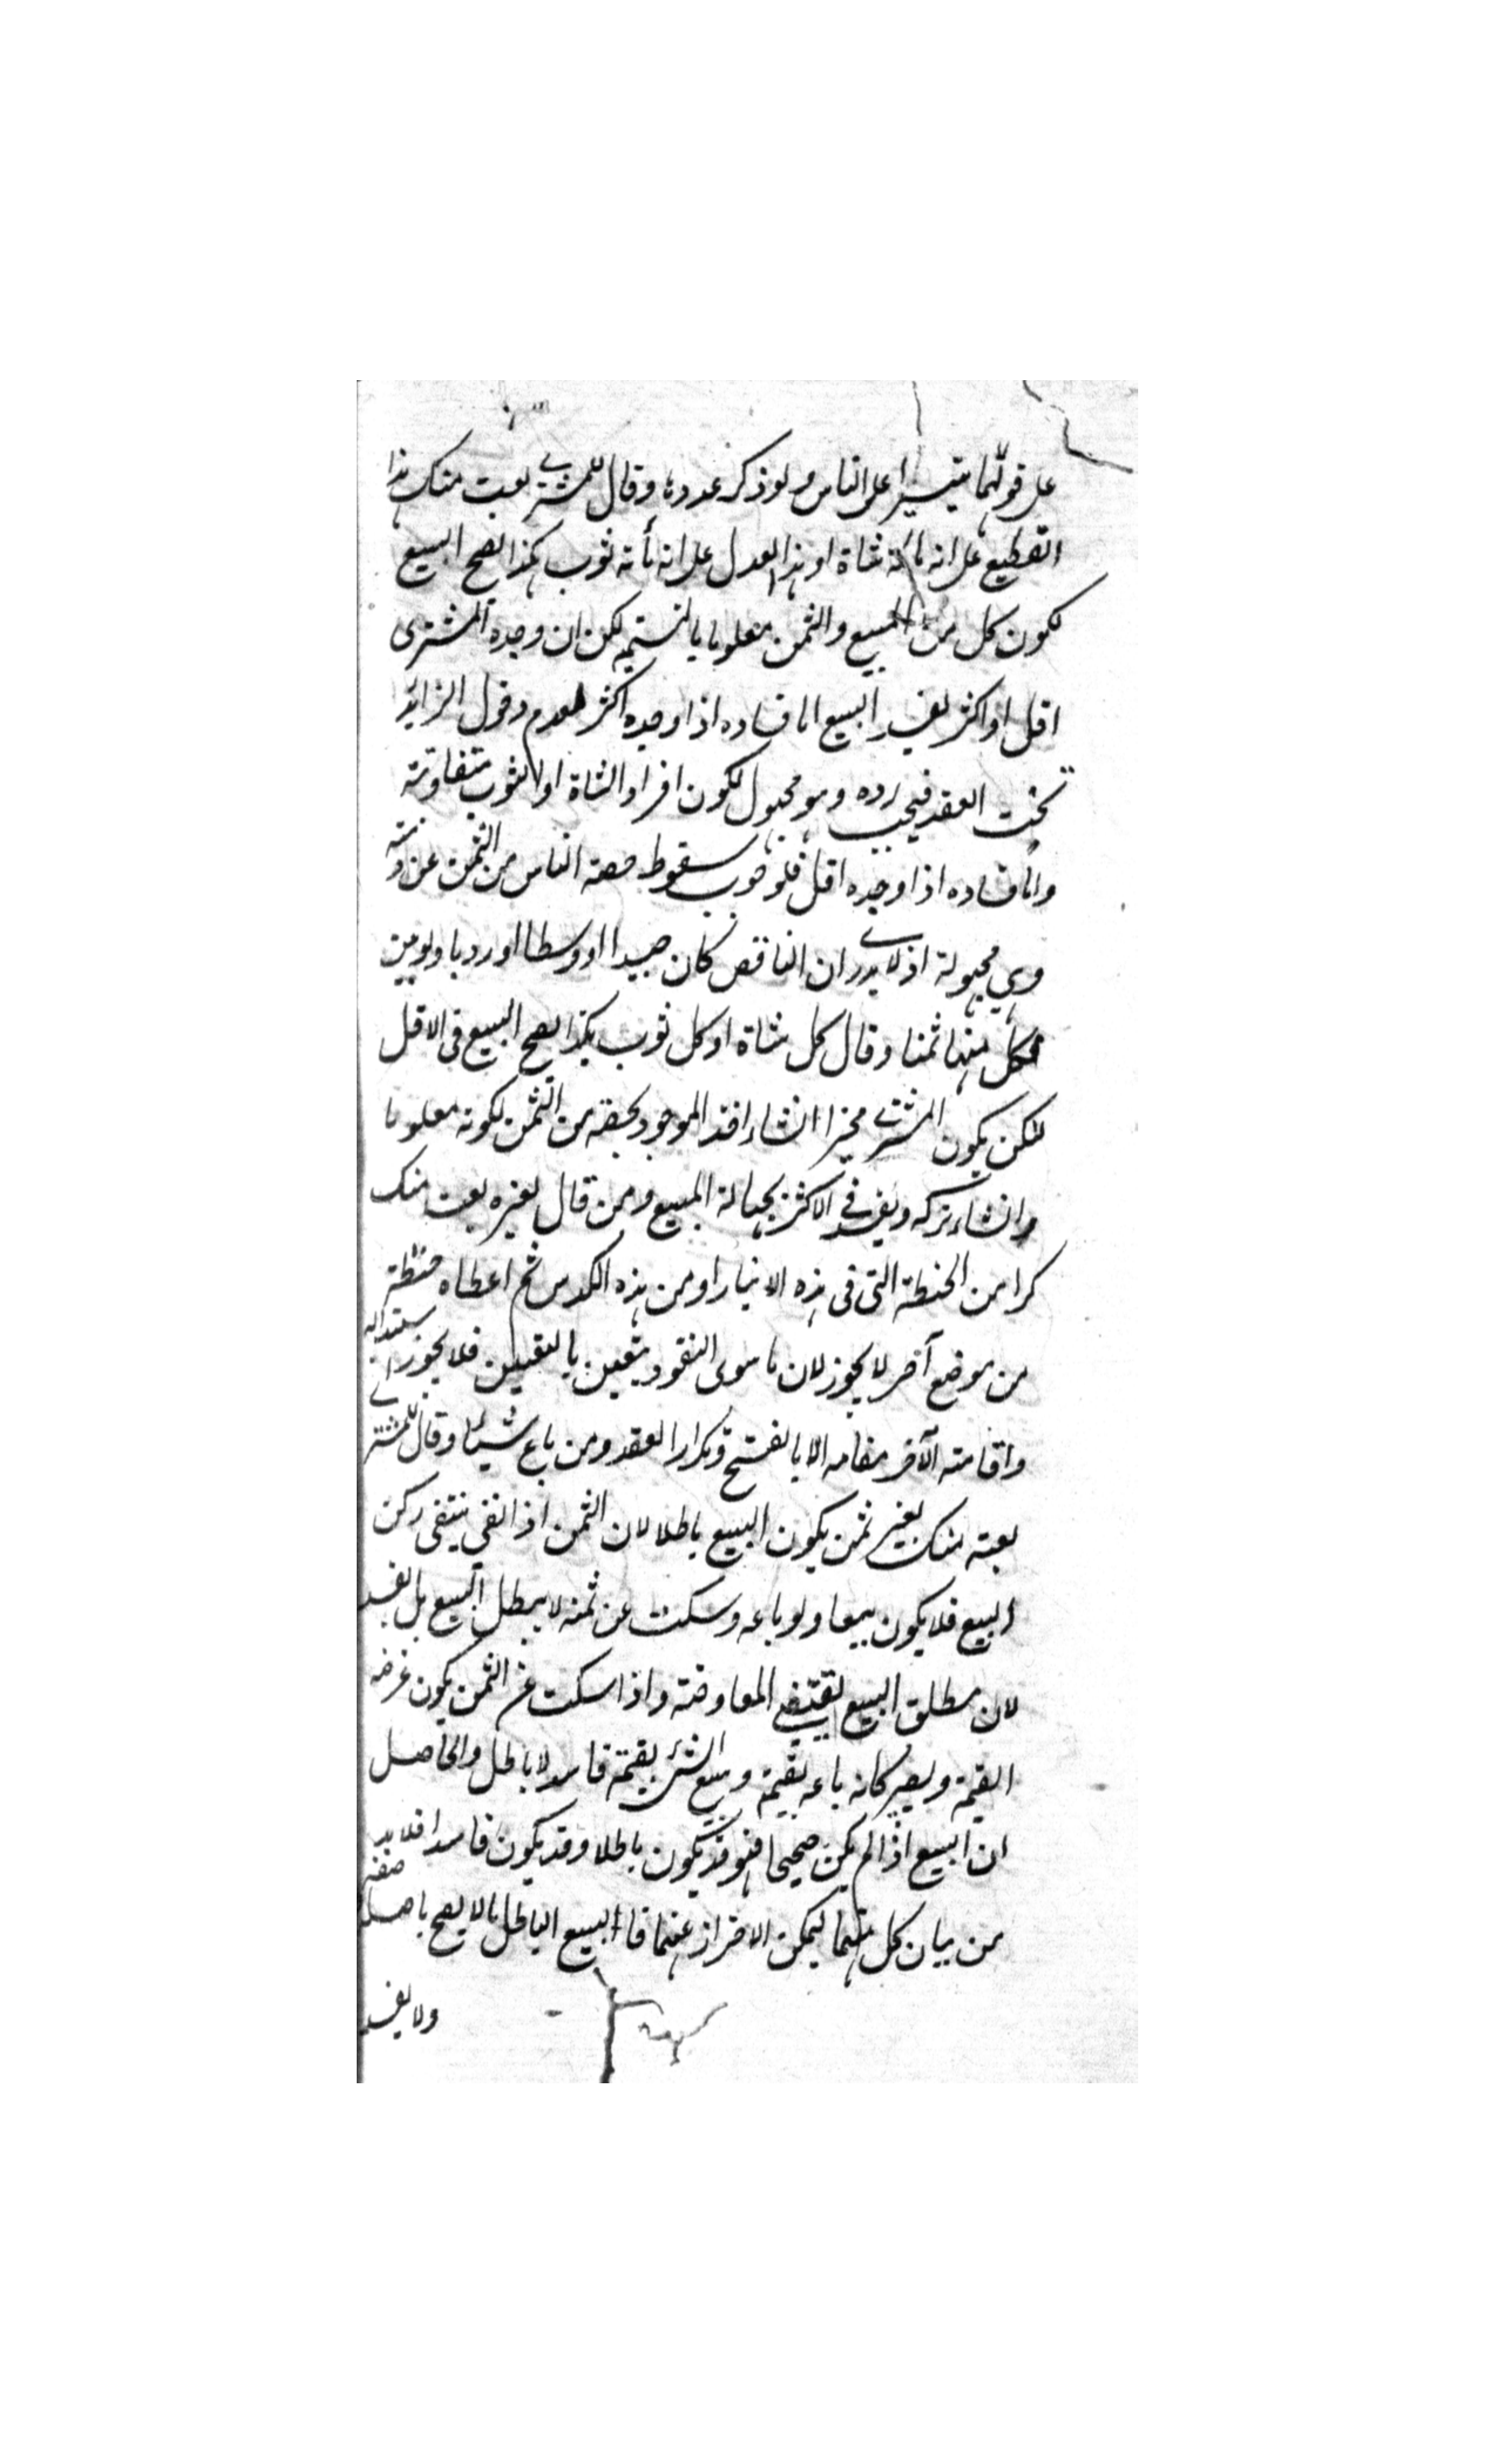 على قولهما تيسيرا على الناس ولو ذكر عددها وقال للمشتري بعت منك هذا
القطيع على انه مائة شاة او هذا العدل على انه مأته ثوب بكذا يصح البيع
لكون كل من المبيع والثمن معلوما بالتسمية لكن ان وجده المشترى
اقل او اكثر يفسد البيع اما فساده اذا وجده اكثر لعدم دخول الزائد
تحت العقد فيجب رده وهو مجهول لكون افراد الشاة او الثوب متفاوتة
واما فساده اذا وجده اقل فلوجوب سقوط حصة الناقص من الثمن عن ذمته
وهي مجهولة اذ لا يدرى ان الناقص كان جيدا او وسطا او رديا ولو بين
لكل منها ثمنا وقال كل شاة او كل ثوب بكذا يصح البيع فى الاقل
لكن يكون المشتري مخيرا انشاء اخذ الموجود بحصته من الثمن لكونه معلوما
وانشاء تركه ويفسد في الاكثر لجهالة المبيع ومن قال لغيره بعت منك
كرا من الحنطة التى فى هذه الانبار او من هذه الكدس ثم اعطاه حنطة
من موضع آخر لا يجوز لان ما سوى النقود يتعين بالتعيين فلا يجوز استبداله
واقامته الآخر مقامه الا بالفسخ وتكرار العقد ومن باع شيئا وقال للمشتري
بعته منك بغير ثمن يكون البيع باطلا لان الثمن اذا نفى ينتفى ركن
البيع فلا يكون بيعا ولو باعه وسكت عن ثمنه لا يبطل البيع بل يفسد
لان مطلق البيع يقتضي المعاوضة واذا سكت عن الثمن يكون غرضه
القيمة ويصير كانه باعه بقيمة وبيع الشئ بقيمته فاسد لا باطل والحاصل
ان البيع اذا لم يكن صحيحا فهو قد يكون باطلا وقد يكون فاسدا فلا بد
من بيان كل منهما ليمكن الاحتراز عنهما فا البيع الباطل مالا يصح باصله
ولا يفيد